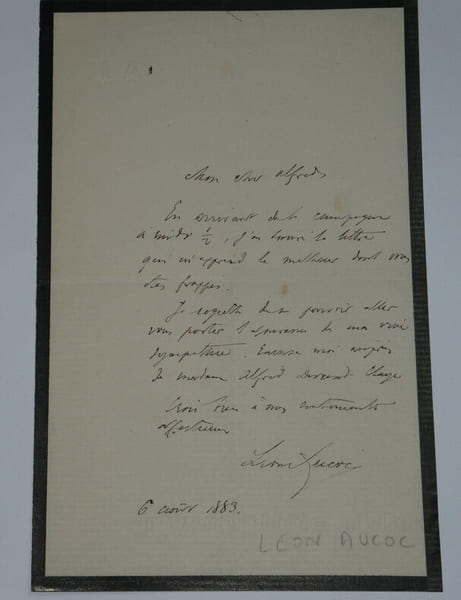 Mon cher Alfred
En arrivant de la campagne
à midi 1/2, j'ai trouvé la lettre
qui m'apprend le malheur dont vous
êtes frappés.
Je regrette de ne pouvoir aller
vous porter l'assurance de ma vive
sympathie. Excuse moi auprès
de madame Alfred Durand-Claye
Crois bien à mes sentiments
affectueux
Léon Aucoc
6 août 1883.
LEON AUCOC